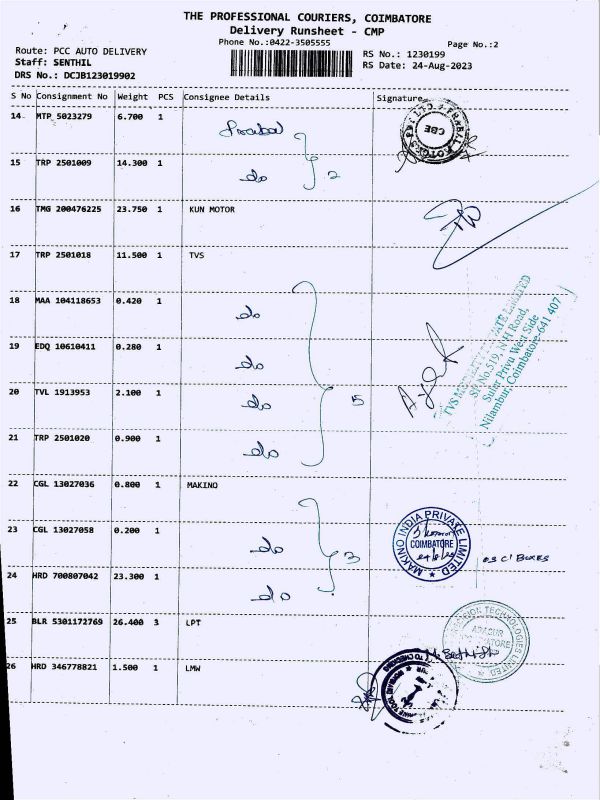 THE PROFESSIONAL COURIERS, COIMBATORE
Delivery Runsheet - CMP
Phone No.:0422-3505555
Page No.:2
Route: PCC AUTO DELIVERY
RS No.: 1230199
Staff: SENTHIL
RS Date: 24-Aug-2023
DRS No.: DCJB123019902
S No Consignment No Weight PCS Consignee Details Signature
14 MTP 5023279 6.700 1
15 TRP 2501009 14.300 1 do 2
16 TMG 200476225 23.750 1 KUN MOTOR
17 TRP 2501018 11.500 1 TVS
18 MAA 104118653 0.420 1 do
19 EDQ 10610411 0.280 1 do
20 TVL 1913953 2.100 1 do 5
21 TRP 2501020 0.900 1 do
22 CGL 13027036 0.800 1 MAKINO
23 CGL 13027058 0.200 1 do 3
24 HRD 700807042 23.300 1 do
25 BLR 5301172769 26.400 3 LPT
26 HRD 346778821 1.500 1 LMW
CBE
Sf No.519, N H Road,
Sufer Privu West Side
Nilambur, Coimbatore-641 407
MAKINO INDIA PRIVATE LIMITED
COIMBATORE
03 C'BOXES
TECHNOLOGIES